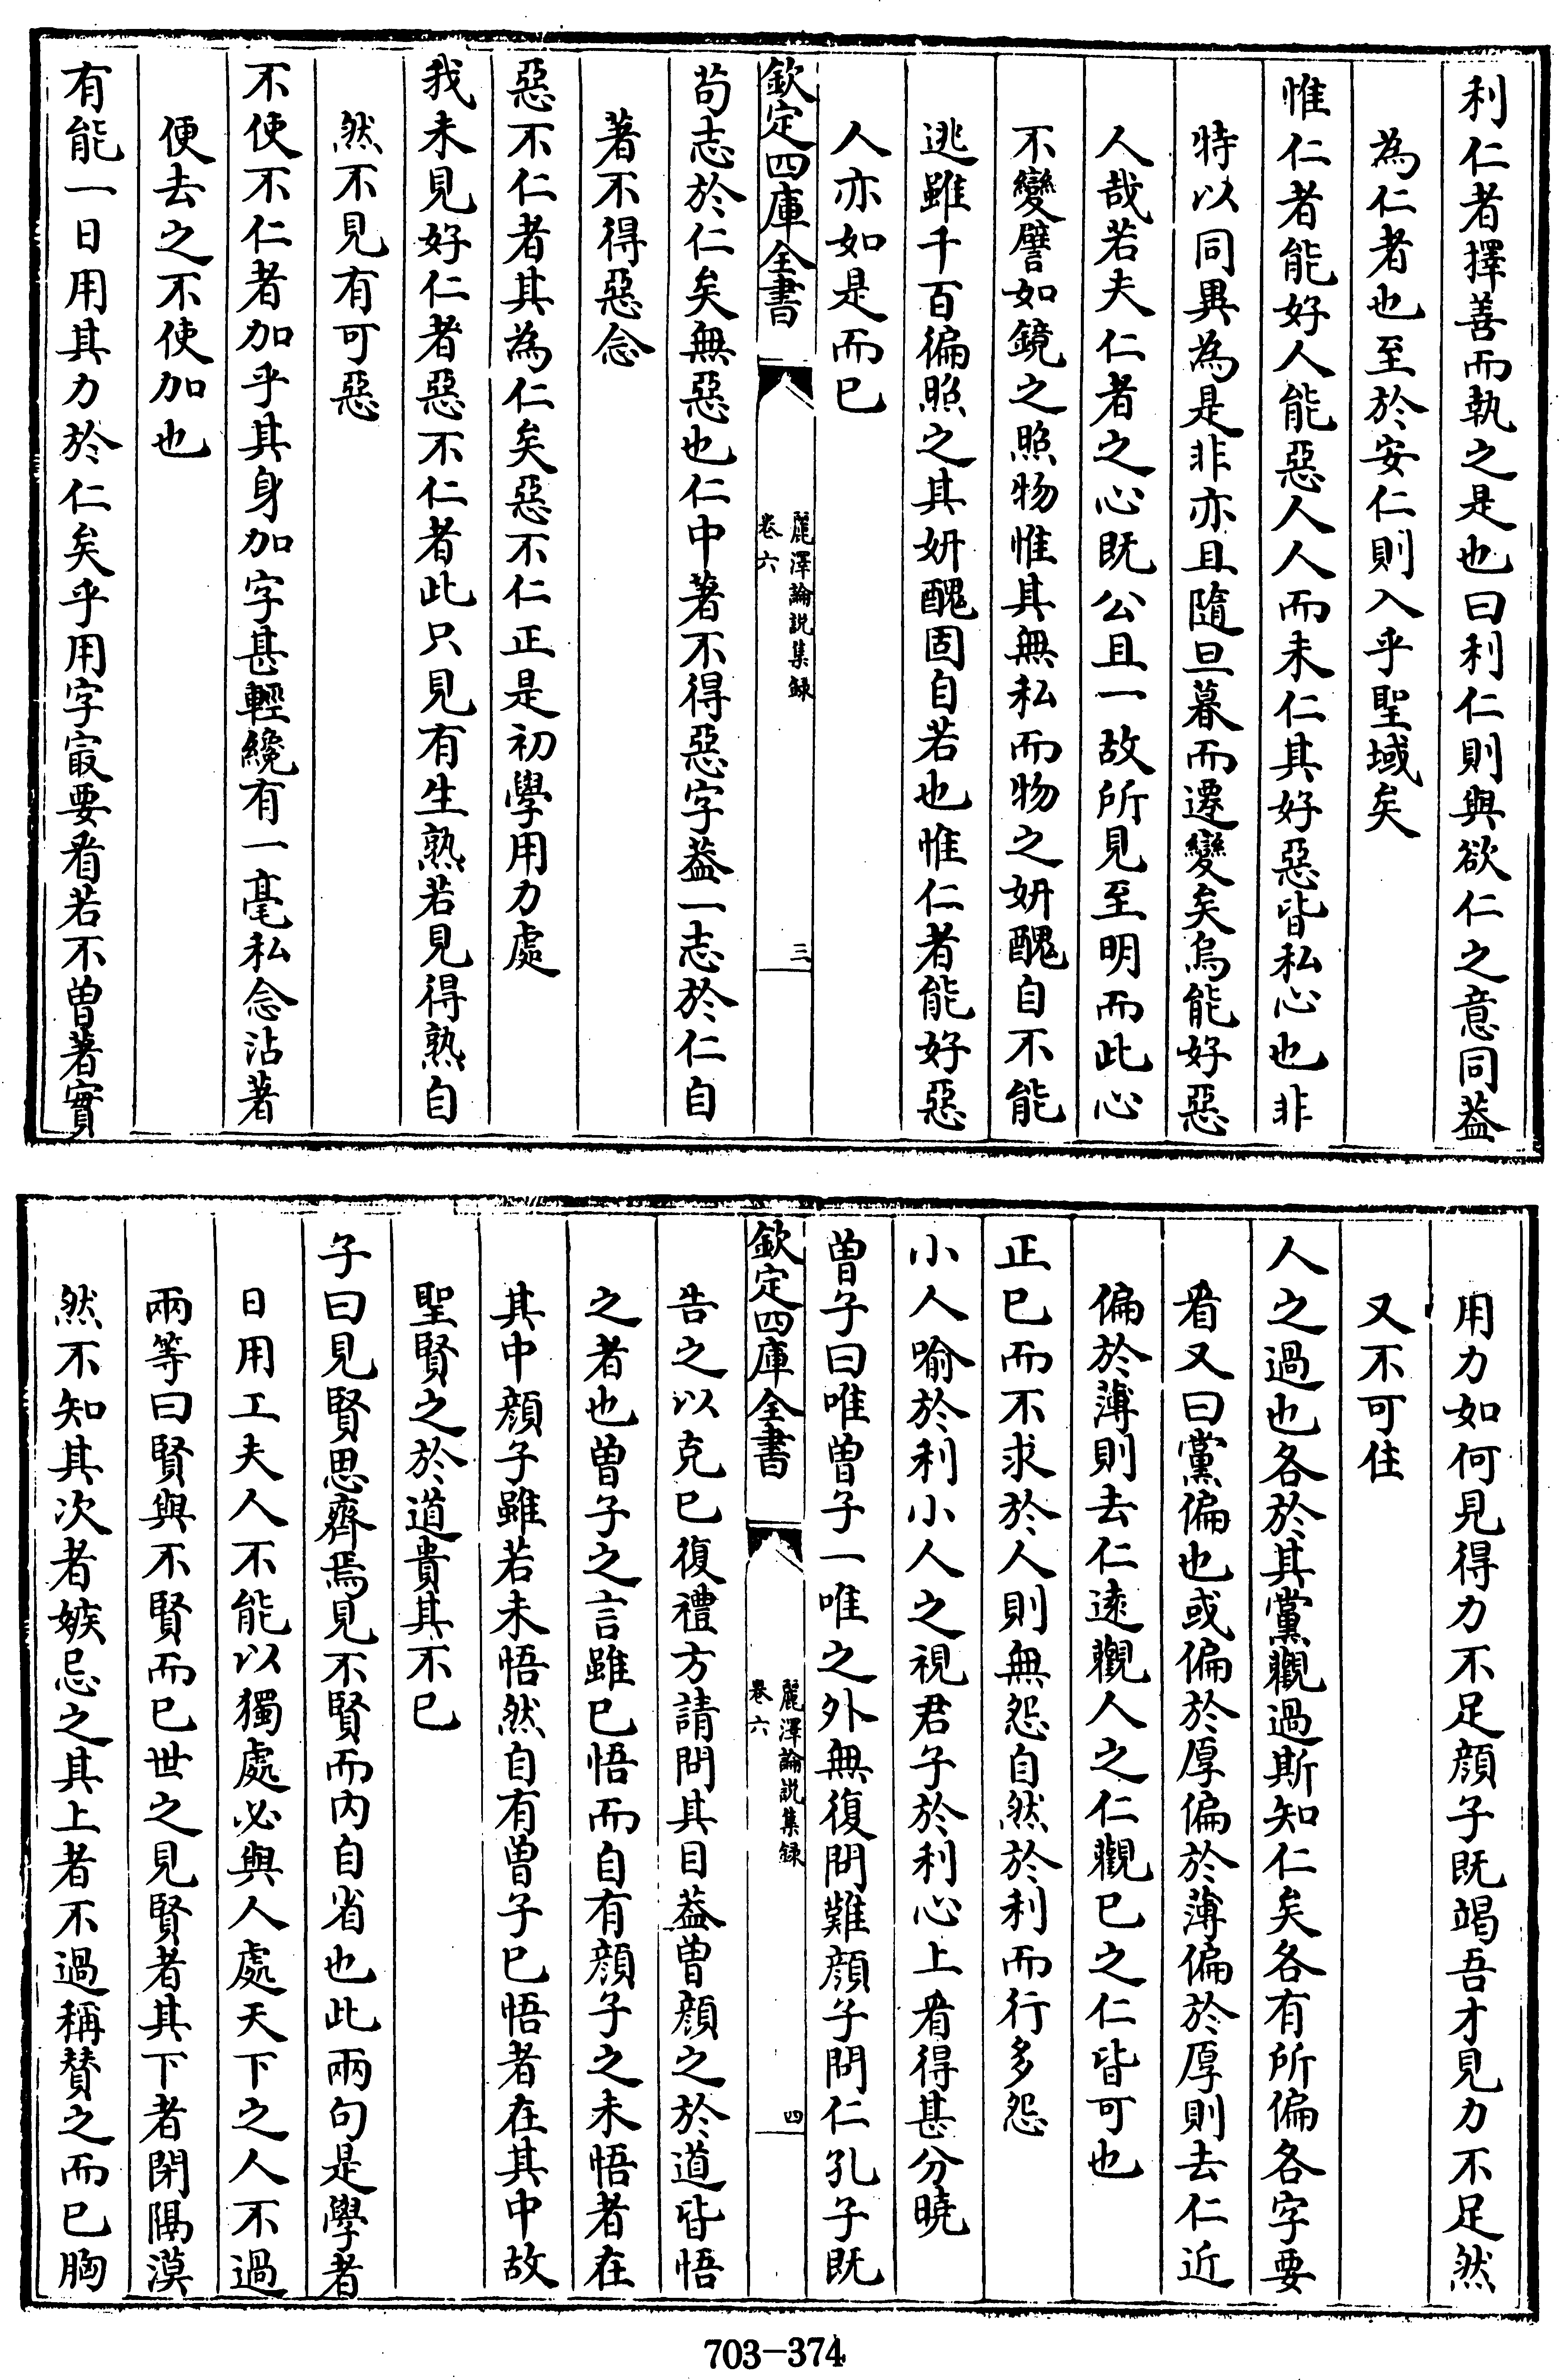 利仁者擇善而執之是也曰利仁則與欲仁之意同葢
為仁者也至於安仁則入乎聖域矣
惟仁者能好人能惡人人而未仁其好惡皆私心也非
特以同異為是非亦且隨旦暮而遷變矣烏能好惡
人哉若夫仁者之心既公且一故所見至明而此心
不變譬如鏡之照物惟其無私而物之妍醜自不能
逃雖千百徧照之其妍醜固自若也惟仁者能好惡
人亦如是而已
欽定四庫全書
麗澤論說集録
卷六
三
苟志於仁矣無惡也仁中著不得惡字葢一志於仁自
著不得惡念
惡不仁者其為仁矣惡不仁正是初學用力處
我未見好仁者惡不仁者此只見有生熟若見得熟自
然不見有可惡
不使不仁者加乎其身加字甚輕纔有一毫私念沾著
便去之不使加也
有能一日用其力於仁矣乎用字㝡要看若不曽著實
用力如何見得力不足顔子既竭吾才見力不足然
又不可住
人之過也各於其黨觀過斯知仁矣各有所偏各字要
看又曰黨偏也或偏於厚偏於薄偏於厚則去仁近
偏於薄則去仁逺觀人之仁觀已之仁皆可也
正已而不求於人則無怨自然於利而行多怨
小人喻於利小人之視君子於利心上看得甚分曉
曽子曰唯曽子一唯之外無復問難顔子問仁孔子既
欽定四庫全書
麗澤論說集録
卷六
四
告之以克已復禮方請問其目葢曽顔之於道皆悟
之者也曽子之言雖已悟而自有顔子之未悟者在
其中顔子雖若未悟然自有曽子已悟者在其中故
聖賢之於道貴其不已
子曰見賢思齊焉見不賢而内自省也此兩句是學者
日用工夫人不能以獨處必與人處天下之人不過
兩等曰賢與不賢而已世之見賢者其下者閉隔漠
然不知其次者嫉忌之其上者不過稱賛之而已胸
703-374